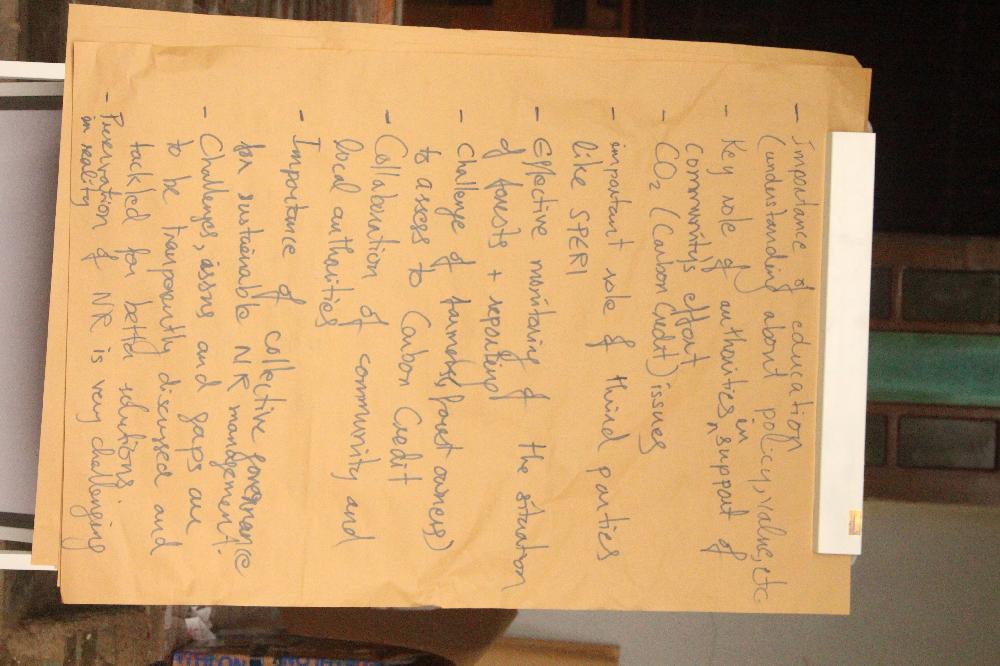 - Importance of education
(understanding about policy, value, etc
- Key role of authorities in support of
community's effort
- CO2 (Carbon Credit) issues
- important role of third parties
like SPERI
- Effective monitoring of the situation
of forests + reporting
- Challenge of farmers (forest owners)
to assess to Carbon Credit
- Collaboration of community and
local authorities
- Importance of collective governance
for sustainable NR management.
- Challenges, issues and gaps are
to be transparently discussed and
tackled for better solutions.
- Preservation of NR is very challenging
in reality